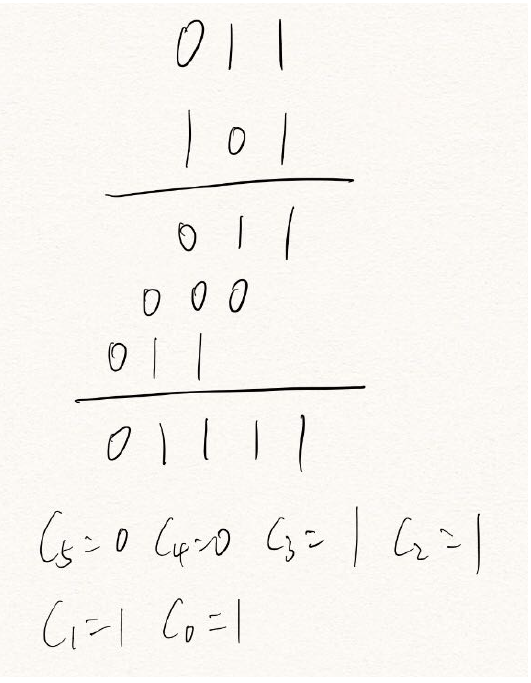 011
101
011
000
011
01111
C5=0 C4=0 C3=1 C2=1
C1=1 C0=1